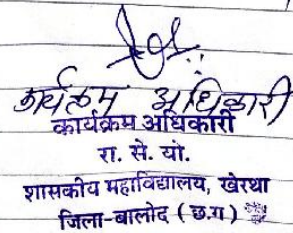 कार्यक्रम अधिकारी
कार्यक्रम अधिकारी
रा. से. यो.
शासकीय महाविद्यालय, खेरथा
जिला-बालोद (छ.ग)